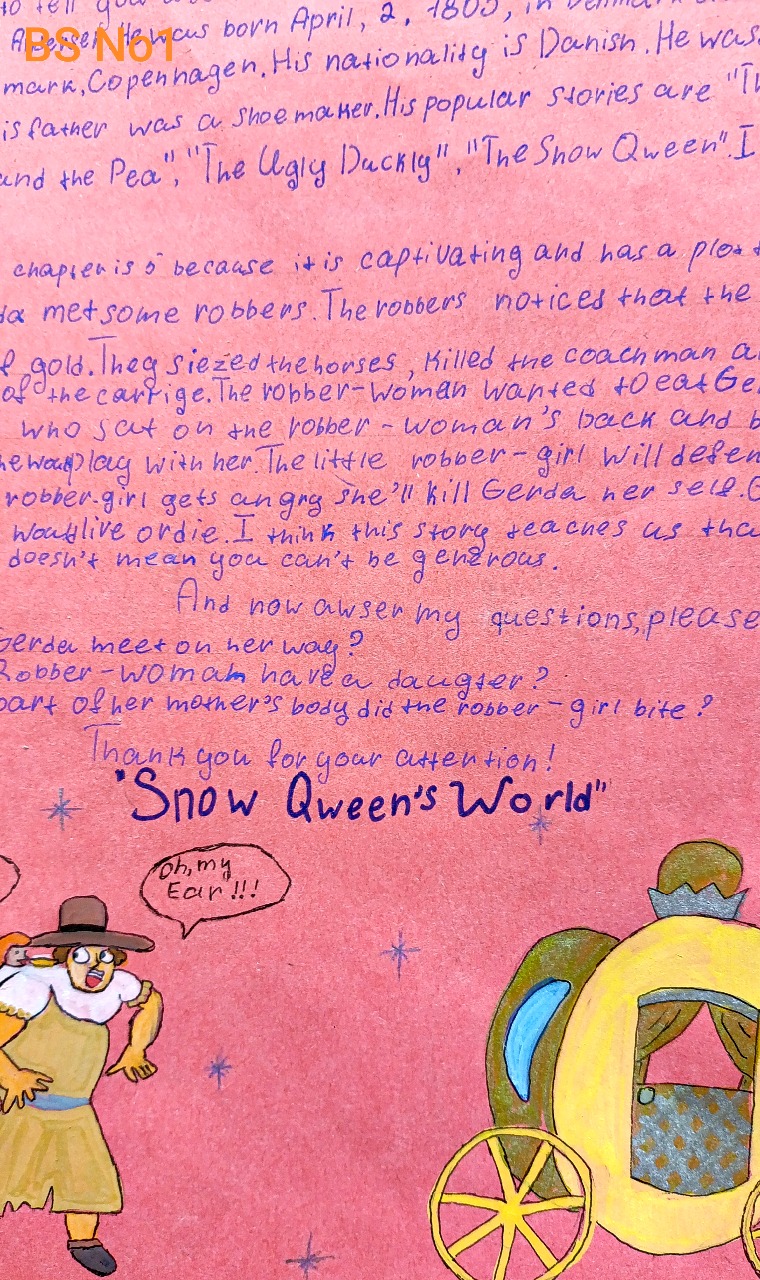 to tell you
BS No1
Andersen. He was born April, 2, 1805, in Denmark
mark, Copenhagen. His nationality is Danish. He was
is father was a shoemaker. His popular stories are "Th
and the Pea", "The Ugly Duckly", "The Snow Qween". I
chapter is 5 because it is captivating and has a plot
da met some robbers. The robbers notices that the
f gold. They siezed the horses, killed the coachman a
of the carrige. The robber-woman wanted to eat Ge
who sat on the robber-woman's back and b
play with her. The little robber-girl will defen
robber-girl gets angry she'll kill Gerda her self. G
live or die. I think this story teaches us tha
doesn't mean you can't be generous.
And now awser my questions, please
Gerda meet on her way?
Robber-woman have a daugter?
part of her mother's body did the robber-girl bite?
Thank you for your attention!
"Snow Qween's World"
Oh, my
Ear!!!